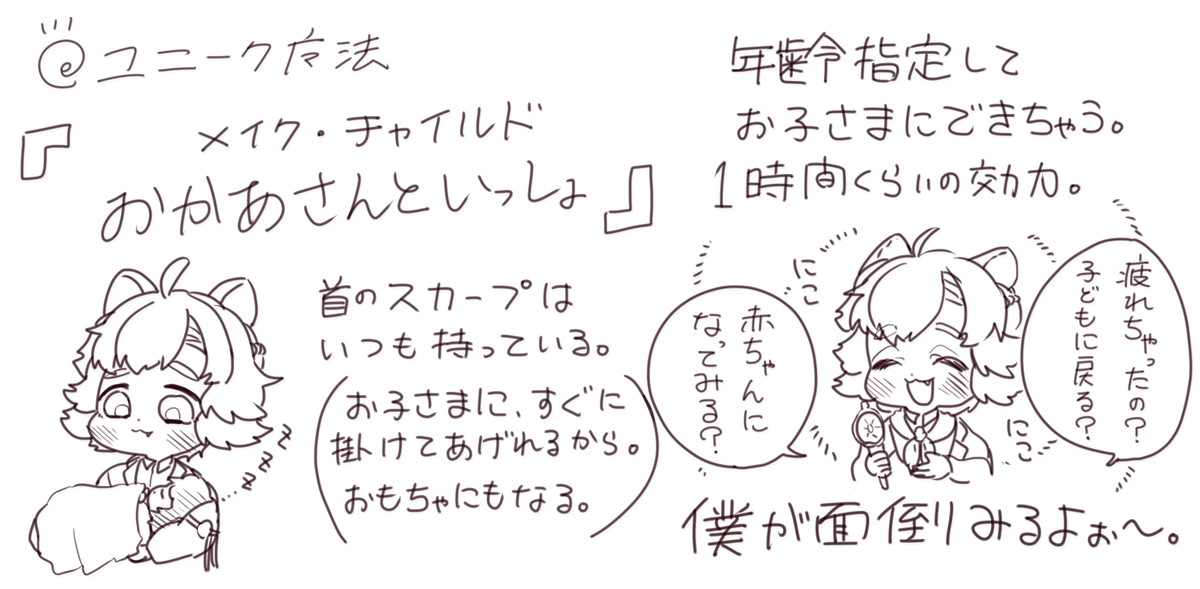 ユニーク方法
『
メイク・チャイルド
おかあさんといっしょ
』
首のスカーフは
いつも持っている。
(お子さまに、すぐに
掛けてあげれるから。
おもちゃにもなる。)
zzzz
年齢指定して
お子さまにできちゃう。
1時間くらいの効力。
疲れちゃったの?
子どもに戻る?
にこ
にこ
赤ちゃんに
なってみる?
僕が面倒みるよぉ〜。